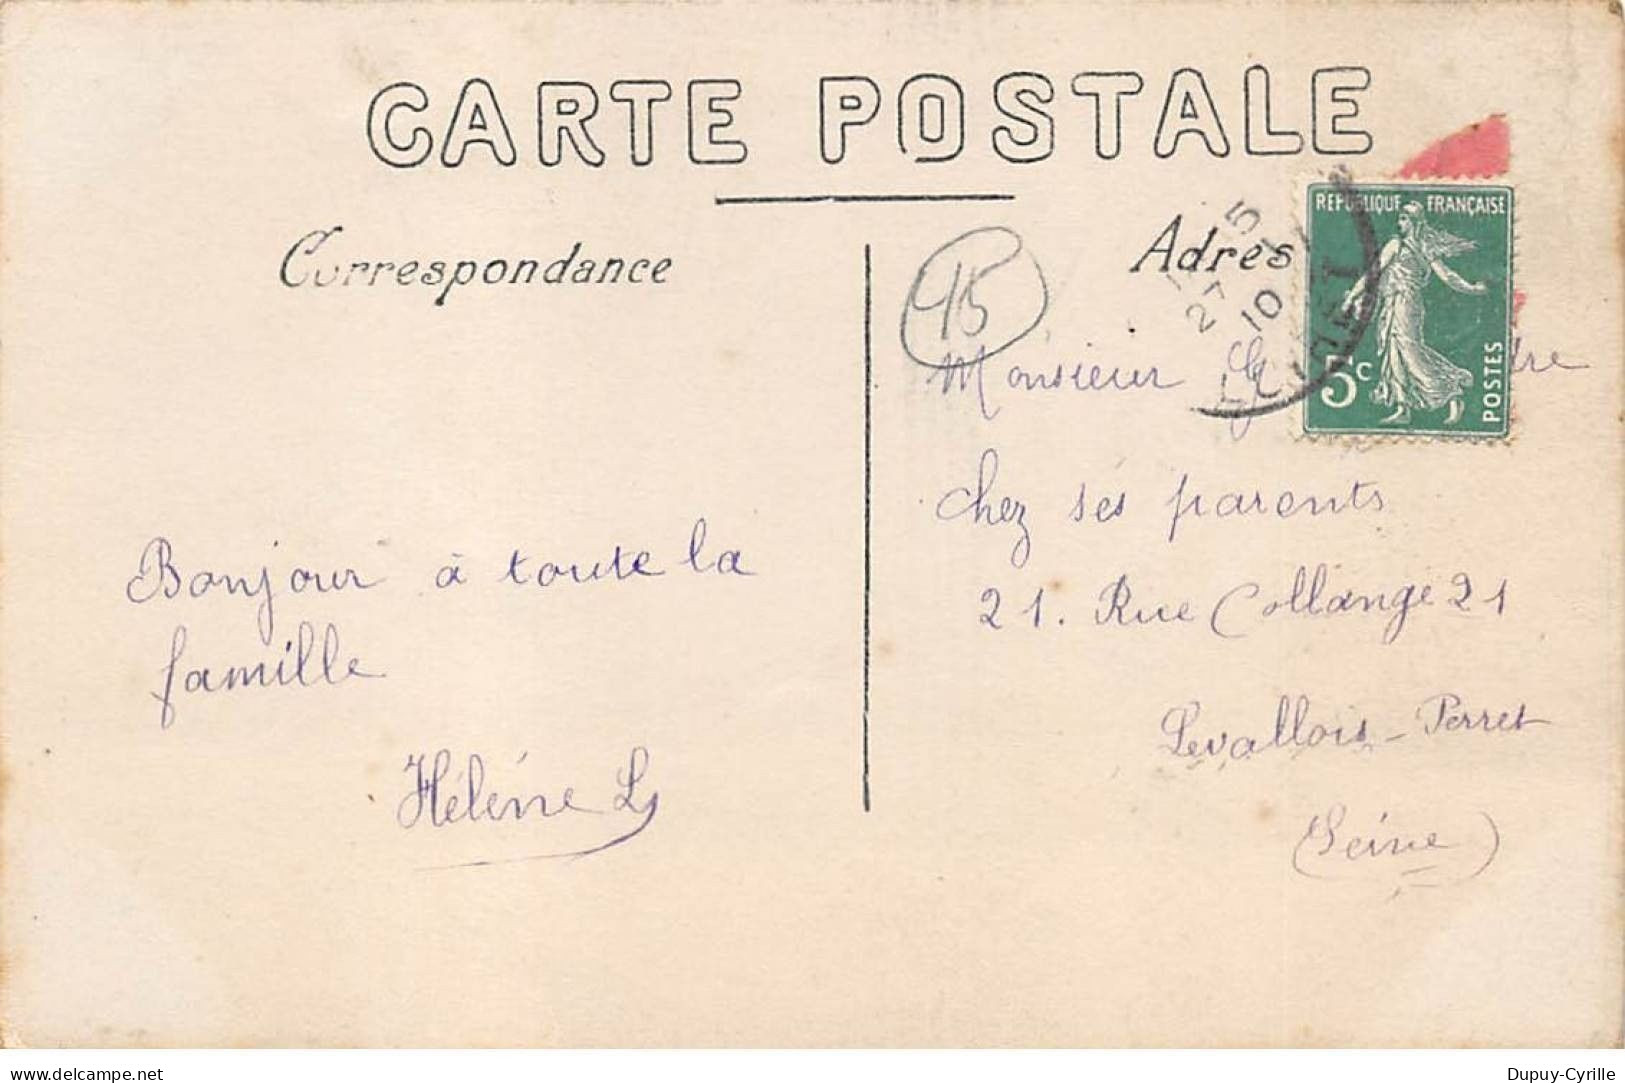 CARTE POSTALE
Correspondance
Adres
45
REPUBLIQUE FRANÇAISE
5c
POSTES
27 5
10
Monsieur
chez ses parents
21. Rue Collange 21
Levallois-Perret
(Seine)
Bonjour à toute la
famille
Hélène L
www.delcampe.net
Dupuy-Cyrille